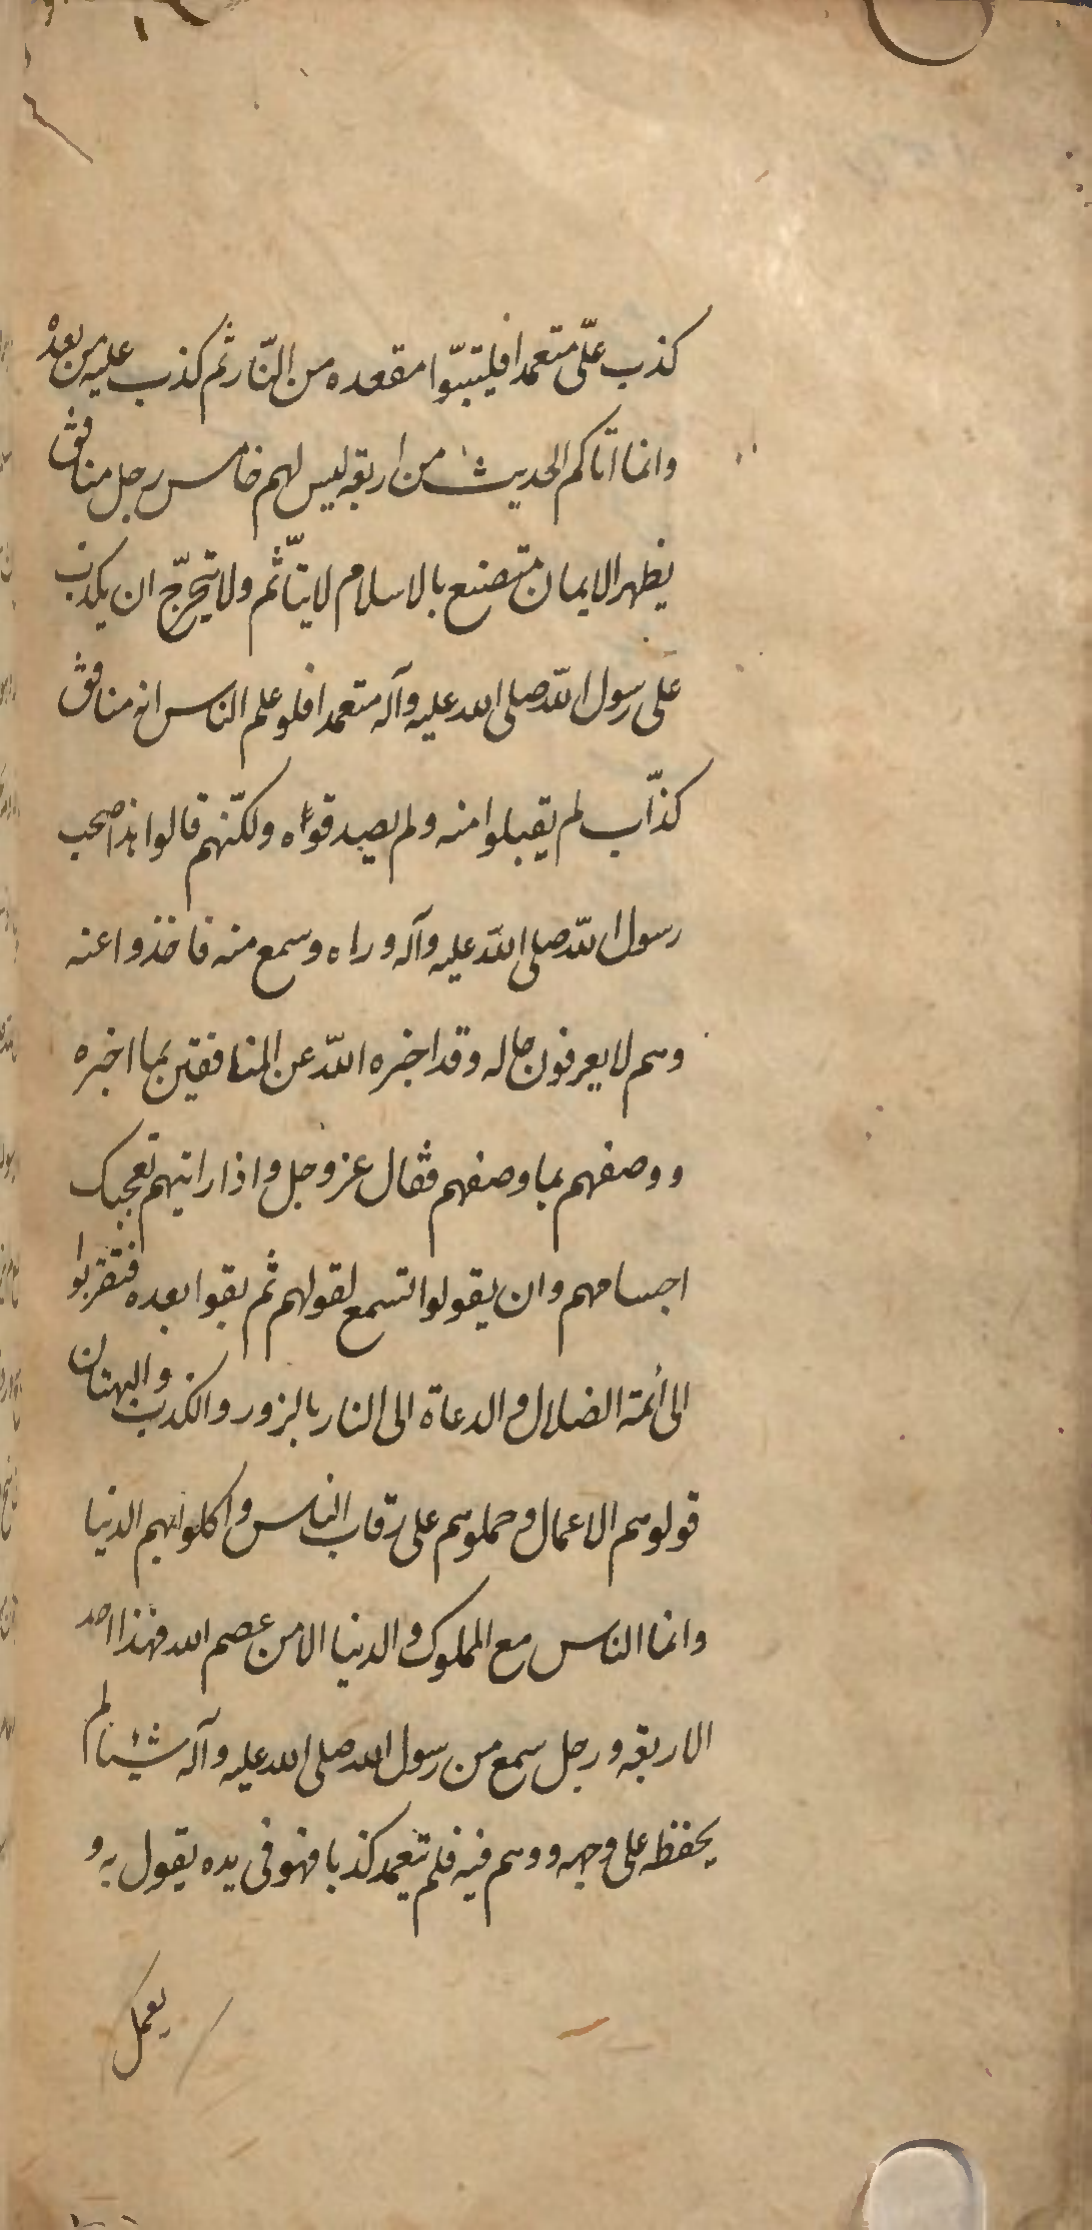 كذب علىّ متعمدا فليتبوّا مقعده من النّار ثم كذب عليه من بعده
وانما اتاكم الحديث من اربعة ليس لهم خامس رجل منافق
يظهر الايمان متصنع بالاسلام لا يتأثّم ولا يتحرّج ان يكذب
على رسول اللّه صلى الله عليه وآله متعمدا فلو علم الناس انه منافق
كذّاب لم يقبلوا منه ولم يصدقوه ولكنّهم قالوا هذا صحب
رسول اللّه صلى اللّه عليه وآله وراه وسمع منه فاخذوا عنه
وهم لا يعرفون حاله وقد اخبره اللّه عن المنافقين بما اخبره
ووصفهم بما وصفهم فقال عز وجل واذا رايتهم تعجبك
اجسامهم وان يقولوا تسمع لقولهم ثم بقوا بعده فتقربوا
الى أئمة الضلال والدعاة الى النار بالزور والكذب والبهتان
فولوهم الاعمال وحملوهم على رقاب الناس واكلوا بهم الدنيا
وانما الناس مع الملوك والدنيا الا من عصم الله فهذا احد
الاربعة ورجل سمع من رسول الله صلى الله عليه وآله شيئا لم
يحفظه على وجهه ووهم فيه فلم يتعمد كذبا فهو فى يده يقول به و
يعمل